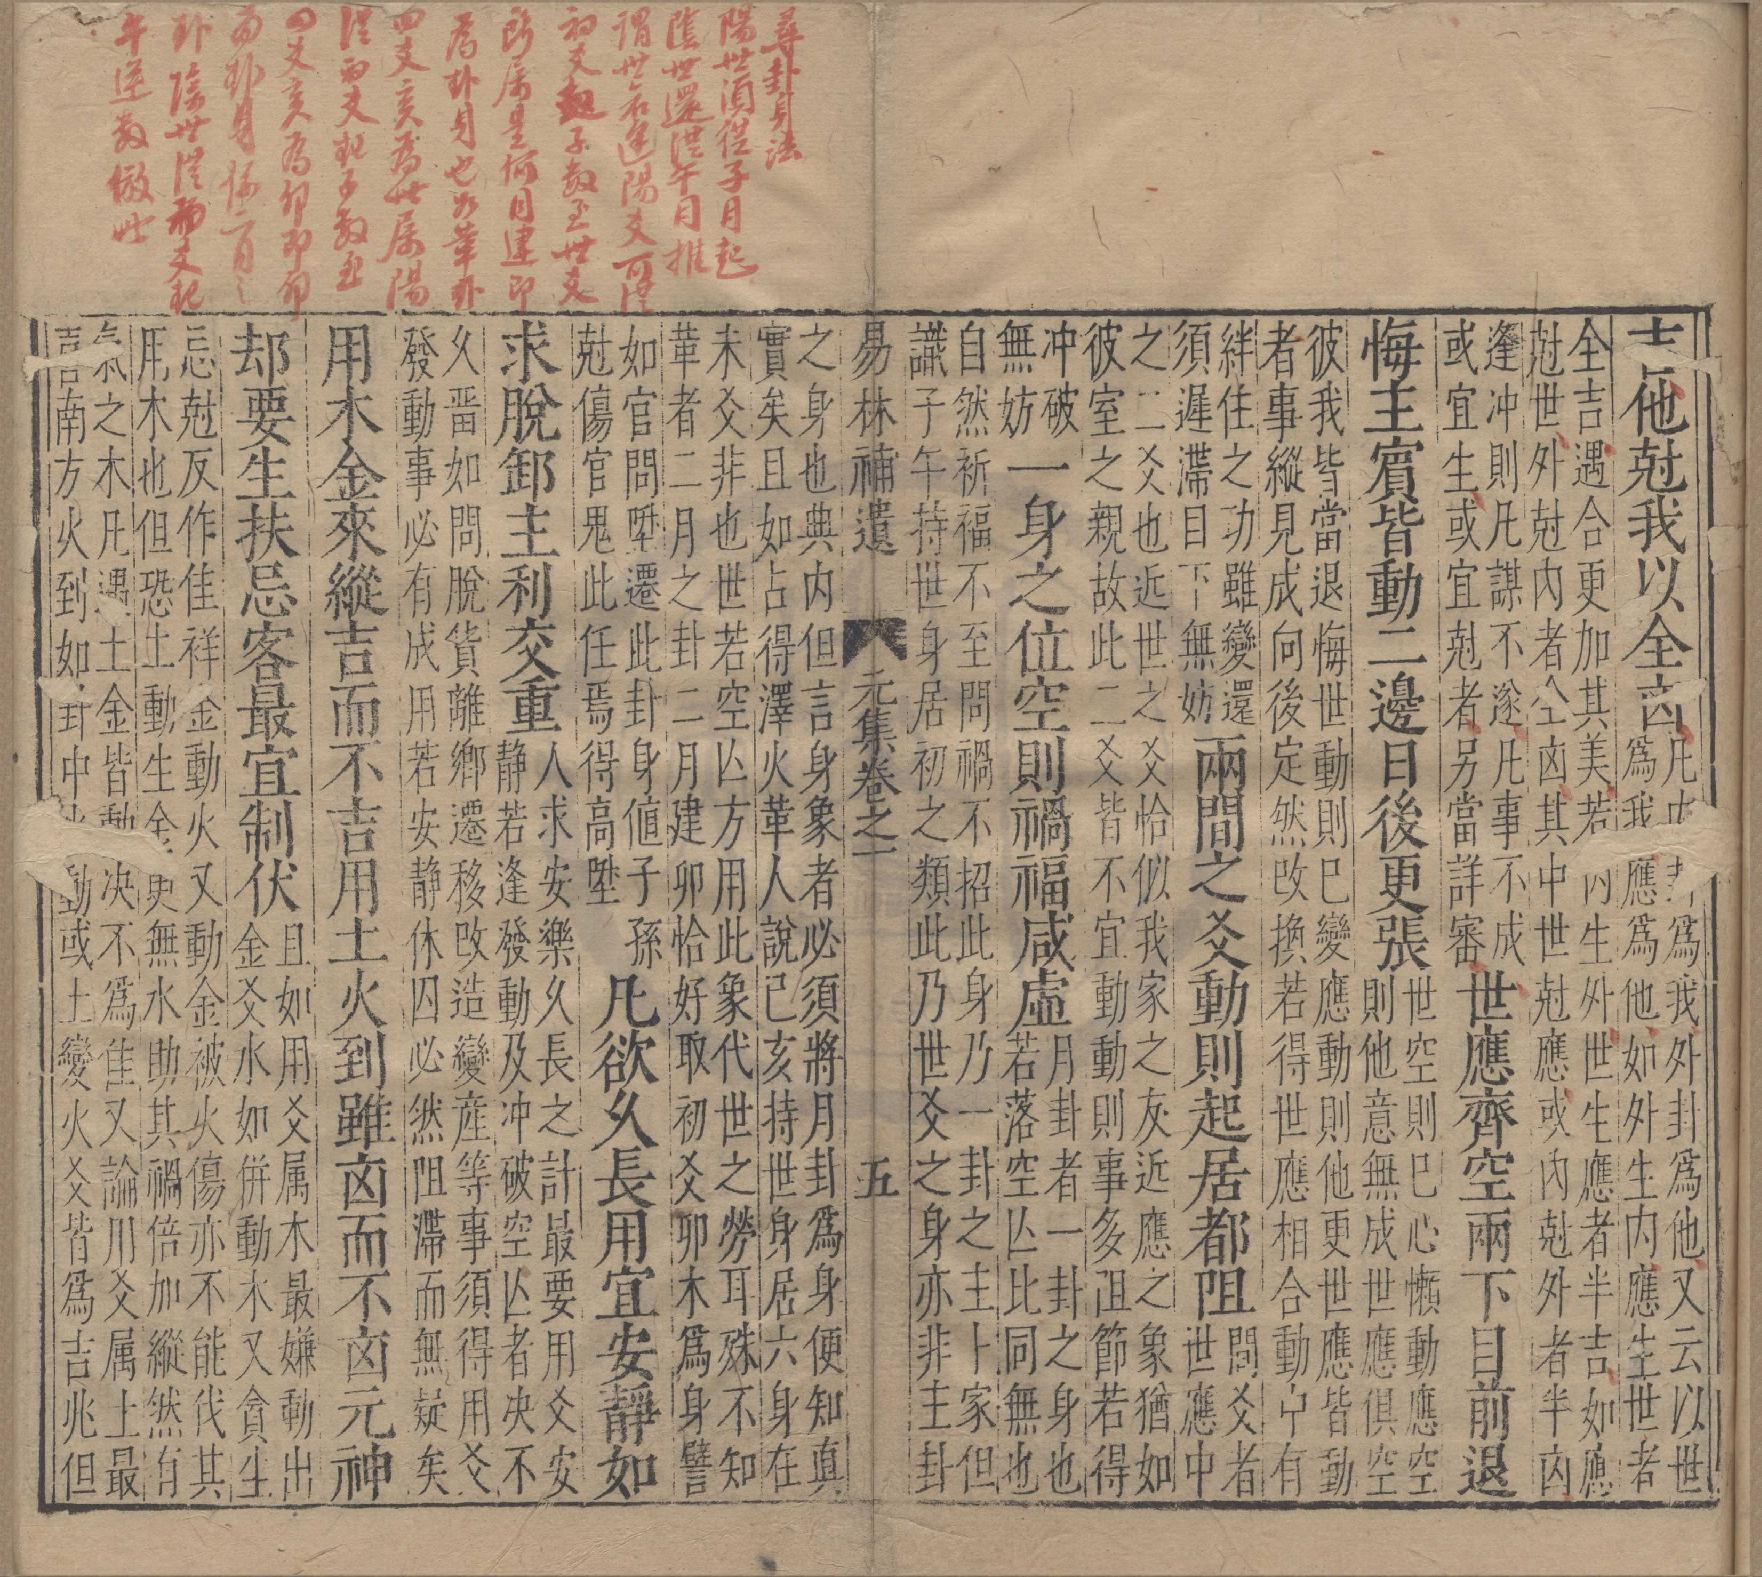 尋卦身法
陽世須從子月起
陰世還從午月推
謂世爻逢陽爻可從
初爻起子數至世爻
所屬是何月建即
為卦身也如革卦
四爻亥為世屬陽
從初爻起子數至
四爻亥為卯即卯
為卦身係二月之
卦陰世從初爻起
午逆數倣此
吉他尅我以全凶
凡內卦爲我外卦爲他又云以世
爲我應爲他如外生內應生世者
全吉遇合更加其美若內生外世生應者半吉如應
尅世外尅內者全凶其中世尅應或內尅外者半凶
逢冲則凡謀不遂凡事不成
或宜生或宜尅者另當詳審
世應齊空兩下目前退
悔主賓皆動二邊日後更張
世空則已心懶動應空
則他意無成世應俱空
彼我皆當退悔世動則已變應動則他更世應皆動
者事縱見成向後定然改換若得世應相合動中有
絆住之功雖變還
須遲滯目下無妨
兩間之爻動則起居都阻
間爻者
世應中
之二爻也近世之爻恰似我家之灰近應之象猶如
彼室之親故此二爻皆不宜動動則事多阻節若得
冲破
無妨
一身之位空則禍福咸虛
月卦者一卦之身也
若落空亾比同無也
自然祈福不至問禍不招此身乃一卦之主卜家但
識子午持世身居初之類此乃世爻之身亦非主卦
易林補遺
元集卷之一
五
之身也典內但言身象者必須將月卦爲身便知真
實矣且如占得澤火革人說已亥持世身居六身在
未爻非也世若空亾方用此象代世之勞耳殊不知
革者二月之卦二月建卯恰好取初爻卯木爲身譬
如官問陞遷此卦身値子孫
尅傷官鬼此任焉得高陞
凡欲久長用宜安靜如
求脫卸主利交重
人求安樂久長之計最要用爻安
靜若逢發動及冲破空亾者决不
久畱如問脫貨離鄉遷移改造變産等事須得用爻
發動事必有成用若安靜休囚必然阻滯而無疑矣
用木金來縱吉而不吉用土火到雖凶而不凶元神
却要生扶忌客最宜制伏
且如用爻属木最嫌動出
金爻水如併動木又貪生
忌尅反作佳祥金動火又動金被火傷亦不能伐其
用木也但恐土動生金更無水助其禍倍加縱然有
氣之木凡遇土金皆動决不爲佳又論用爻属土最
喜南方火到如卦中火動或土變火爻皆爲吉兆但